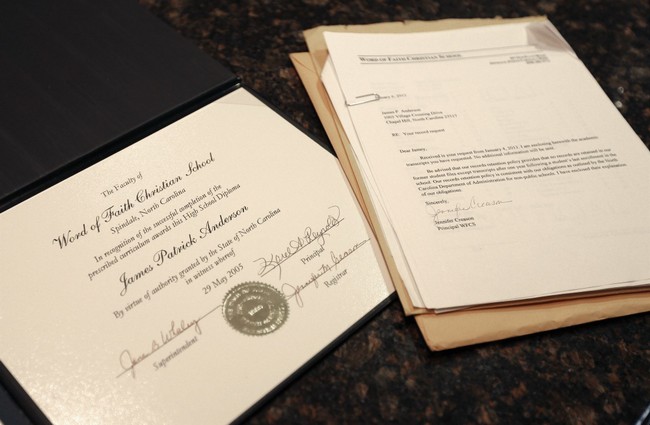 The Faculty of
Word of Faith Christian School
Spindale, North Carolina
In recognition of the successful completion of the
prescribed curriculum awards this High School Diploma
James Patrick Anderson
By virtue of authority granted by the State of North Carolina
in witness whereof
29 May 2005
Principal
Registrar
Superintendent
Word of Faith Christian School
James P. Anderson
Chapel Hill, North Carolina
RE: Your record request
Dear Jamey:
Received is your request from January 4, 2013. I am enclosing herewith the academic
transcripts you have requested. No additional information will be sent.
Be advised that our records retention policy provides that no records are retained in our
former student files except transcripts after one year following a student's last enrollment in the
school. Our records retention policy is consistent with our obligations as outlined by the North
Carolina Department of Administration for non-public schools. I have enclosed their explanation
of our obligations.
Sincerely,
Jennifer Creason
Principal WFCS